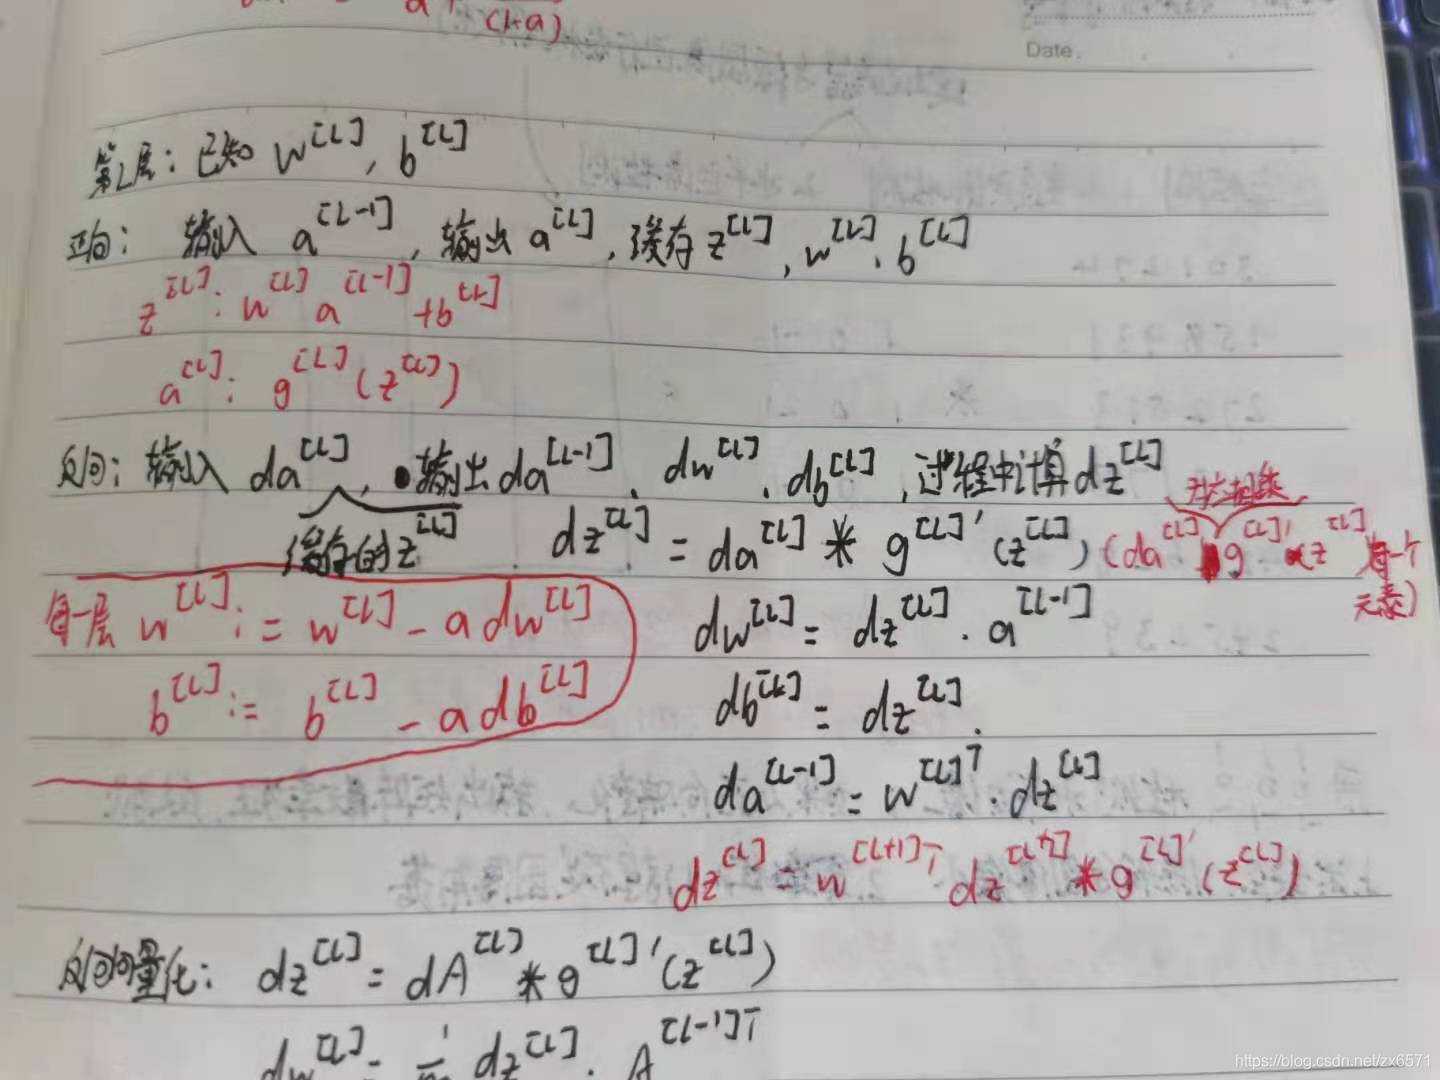 a (1-a)
Date
第L层：已知 w^[L], b^[L]
正向： 输入 a^[L-1], 输出 a^[L], 缓存 z^[L], w^[L], b^[L]
z^[L]: w^[L] a^[L-1] +b^[L]
a^[L]: g^[L] (z^[L])
反向：输入 da^[L], 输出 da^[L-1]、dw^[L]、db^[L], 过程中计算 dz^[L]
对应相乘
缓存的 z^[L] dz^[L] = da^[L] * g^[L]' (z^[L]) (da^[L] g^[L]' (z^[L]) 每一个
元素)
每一层 w^[L] := w^[L] - a dw^[L] dw^[L] = dz^[L] · a^[L-1]
b^[L] := b^[L] - a db^[L] db^[L] = dz^[L].
da^[L-1] = w^[L]T · dz^[L]
dz^[L] = w^[L+1]T dz^[L+1] * g^[L]' (z^[L])
反向向量化： dz^[L] = dA^[L] * g^[L]' (z^[L])
dw^[L] = 1/m dz^[L] · A^[L-1]T
https://blog.csdn.net/zx6571